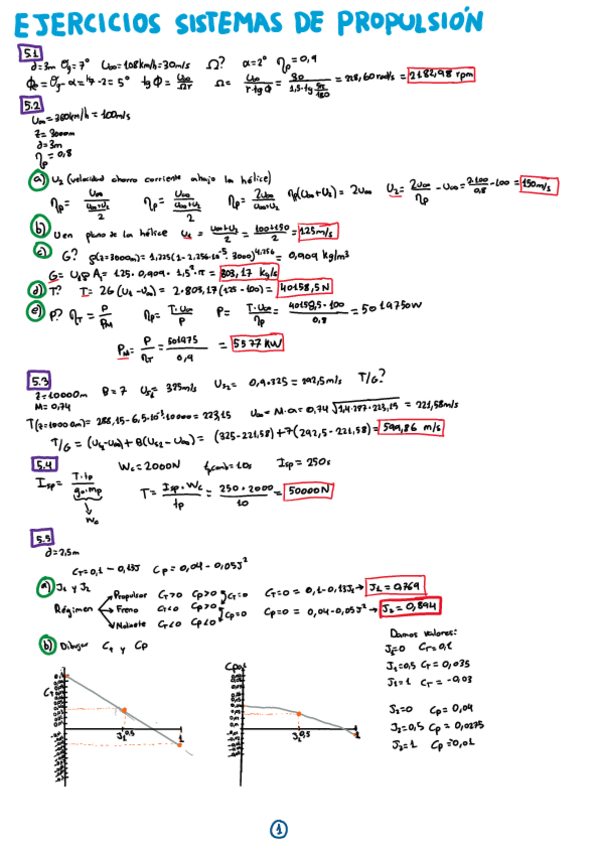 EJERCICIOS SISTEMAS DE PROPULSIÓN
5.1
d=3m θg=7° U∞=108km/h=30m/s Ω? α=2° ηp=0,9
Φ=θg-α=7-2=5° tgΦ=U∞/Ωr Ω=U∞/(r·tgΦ)=30/(1,5·tg 5π/180)=228,60rad/s=2182,98 rpm
5.2
U∞=360km/h=100m/s
z=3000m
d=3m
ηp=0,8
a) U2 (velocidad chorro corriente abajo la hélice)
ηp=U∞/((U∞+U2)/2) ηp=U∞/((U∞+U2)/2) ηp=2U∞/(U∞+U2) ηp(U∞+U2)=2U∞ U2=2U∞/ηp-U∞=2·100/0,8-100=150m/s
b) U en plano de la hélice U1=(U∞+U2)/2=(100+150)/2=125m/s
c) G? ρ(z=3000m)=1,225(1-2,256·10⁻⁵·3000)^4,256=0,909 kg/m3
G=U1ρA=125·0,909·1,5²·π=803,17 kg/s
d) T? T=2G(U1-U∞)=2·803,17(125-100)=40158,5N
e) P? ηT=P/PM ηp=T·U∞/P P=T·U∞/ηp=40158,5·100/0,8=5019750W
PM=P/ηT=501975/0,9=5577 KW
5.3
z=10000m B=7 Us1=325m/s Us2=0,9·325=292,5m/s T/G?
M=0,74
T(z=10000m)=288,15-6,5·10⁻³·10000=223,15 U∞=M·a=0,74√1,4·287·223,15=221,58m/s
T/G=(Us1-U∞)+B(Us2-U∞)=(325-221,58)+7(292,5-221,58)=599,86 m/s
5.4
Wc=2000N tcomb=10s Isp=250s
Isp=T·tp/(g0·mp) T=Isp·Wc/tp=250·2000/10=50000N
Wc
5.5
d=2,5m
CT=0,1-0,13J Cp=0,04-0,05J²
a) J1 y J2
Propulsor CT>0 Cp>0 CT=0 CT=0=0,1-0,13J1→J1=0,769
Régimen Freno CT<0 Cp>0 Cp=0 Cp=0=0,04-0,05J²→J2=0,894
Molinete CT<0 Cp<0
b) Dibujar CT y Cp
Damos valores:
J1=0 CT=0,1
J1=0,5 CT=0,035
J1=1 CT=-0,03
J2=0 Cp=0,04
J2=0,5 Cp=0,0275
J2=1 Cp=-0,01
CT
J1 0,5
1
Cp
J2 0,5
1
1